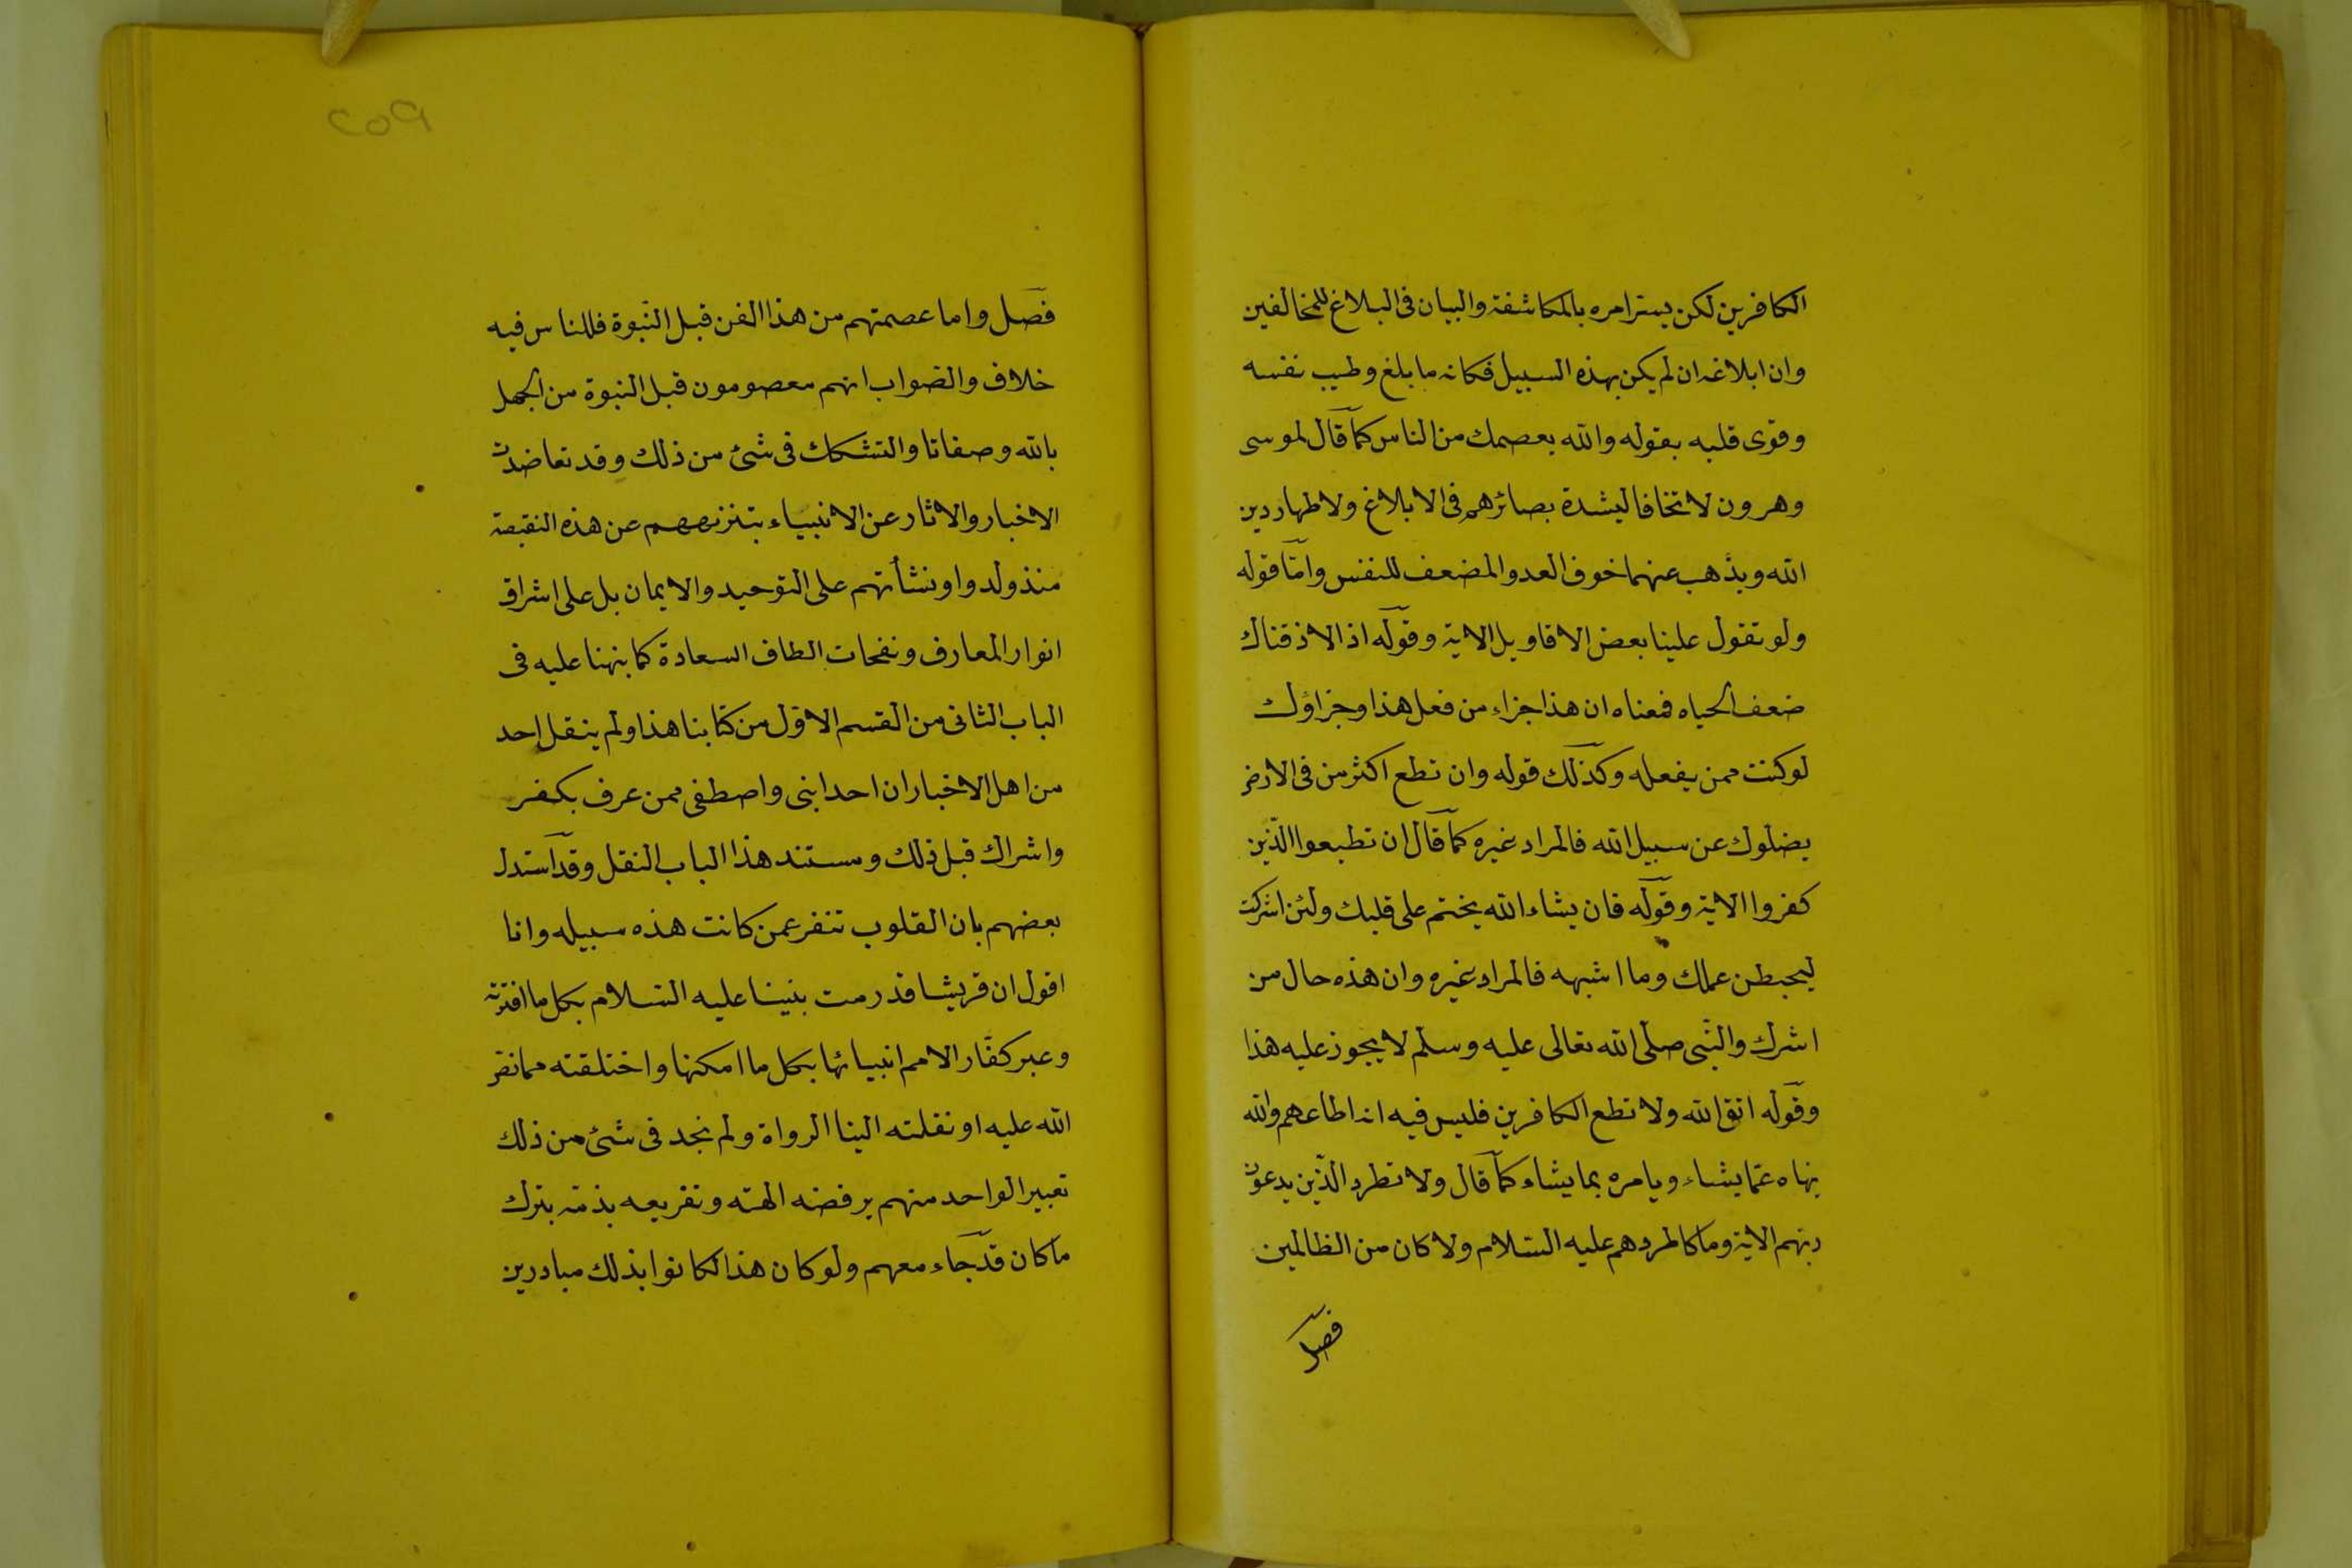 الكافرين لكن يستر امره بالمكاشفة والبيان فى البلاغ للمخالفين
وان ابلاغه ان لم يكن بهذه السبيل فكانه ما بلغ وطيب نفسه
وقوى قلبه بقوله والله يعصمك من الناس كما قال لموسى
وهرون لا تخافا ليشدة بصائرهم فى الابلاغ ولاظهار دين
الله ويذهب عنهما خوف العدو المضعف للنفس وامّا قوله
ولو تقول علينا بعض الاقاويل الاية وقوله اذا لاذقناك
ضعف الحياه فمعناه ان هذا جزاء من فعل هذا وجزاؤك
لو كنت ممن يفعله وكذلك قوله وان تطع اكثر من فى الارض
يضلوك عن سبيل الله فالمراد غيره كما قال ان تطيعوا الّذين
كفروا الاية وقوله فان يشاء الله يختم على قلبك ولئن اشركت
ليحبطن عملك وما اشبهه فالمراد غيره وان هذه حال من
اشرك والنّبى صلّى الله تعالى عليه وسلم لا يجوز عليه هذا
وقوله اتق الله ولا تطع الكافرين فليس فيه انه اطاعهم والله
ينهاه عمّا يشاء ويامره بما يشاء كما قال ولا تطرد الّذين يدعون
ربهم الاية وما كا لمردهم عليه السّلام ولا كان من الظالمين
فصل
٢٥٩
فصل واما عصمتهم من هذا الفن قبل النّبوة فللناس فيه
خلاف والصّواب انهم معصومون قبل النبوة من الجهل
بالله وصفاتا والتشكك فى شئ من ذلك وقد تعاضدت
الاخبار والاثار عن الانبياء بتنزيههم عن هذه النقيصة
منذ ولدوا ونشأتهم على التوحيد والايمان بل على اشراق
انوار المعارف ونفحات الطاف السعادة كما نبهنا عليه فى
الباب الثانى من القسم الاوّل من كتابنا هذا ولم ينقل احد
من اهل الاخبار ان احدا نبى واصطفى ممن عرف بكفر
واشراك قبل ذلك ومستند هذا الباب النقل وقد استدل
بعضهم بان القلوب تنفر عمن كانت هذه سبيله وانا
اقول ان قريشا قد رمت نبينا عليه السّلام بكل ما افترته
وعير كفّار الامم انبيائها بكل ما امكنها واختلقته مما نصّ
الله عليه او نقلته الينا الرواة ولم نجد فى شئ من ذلك
تعبير الواحد منهم برفضه الهته وتقريعه بذمّه بترك
ما كان قد جاء معهم ولو كان هذا لكانوا بذلك مبادرين